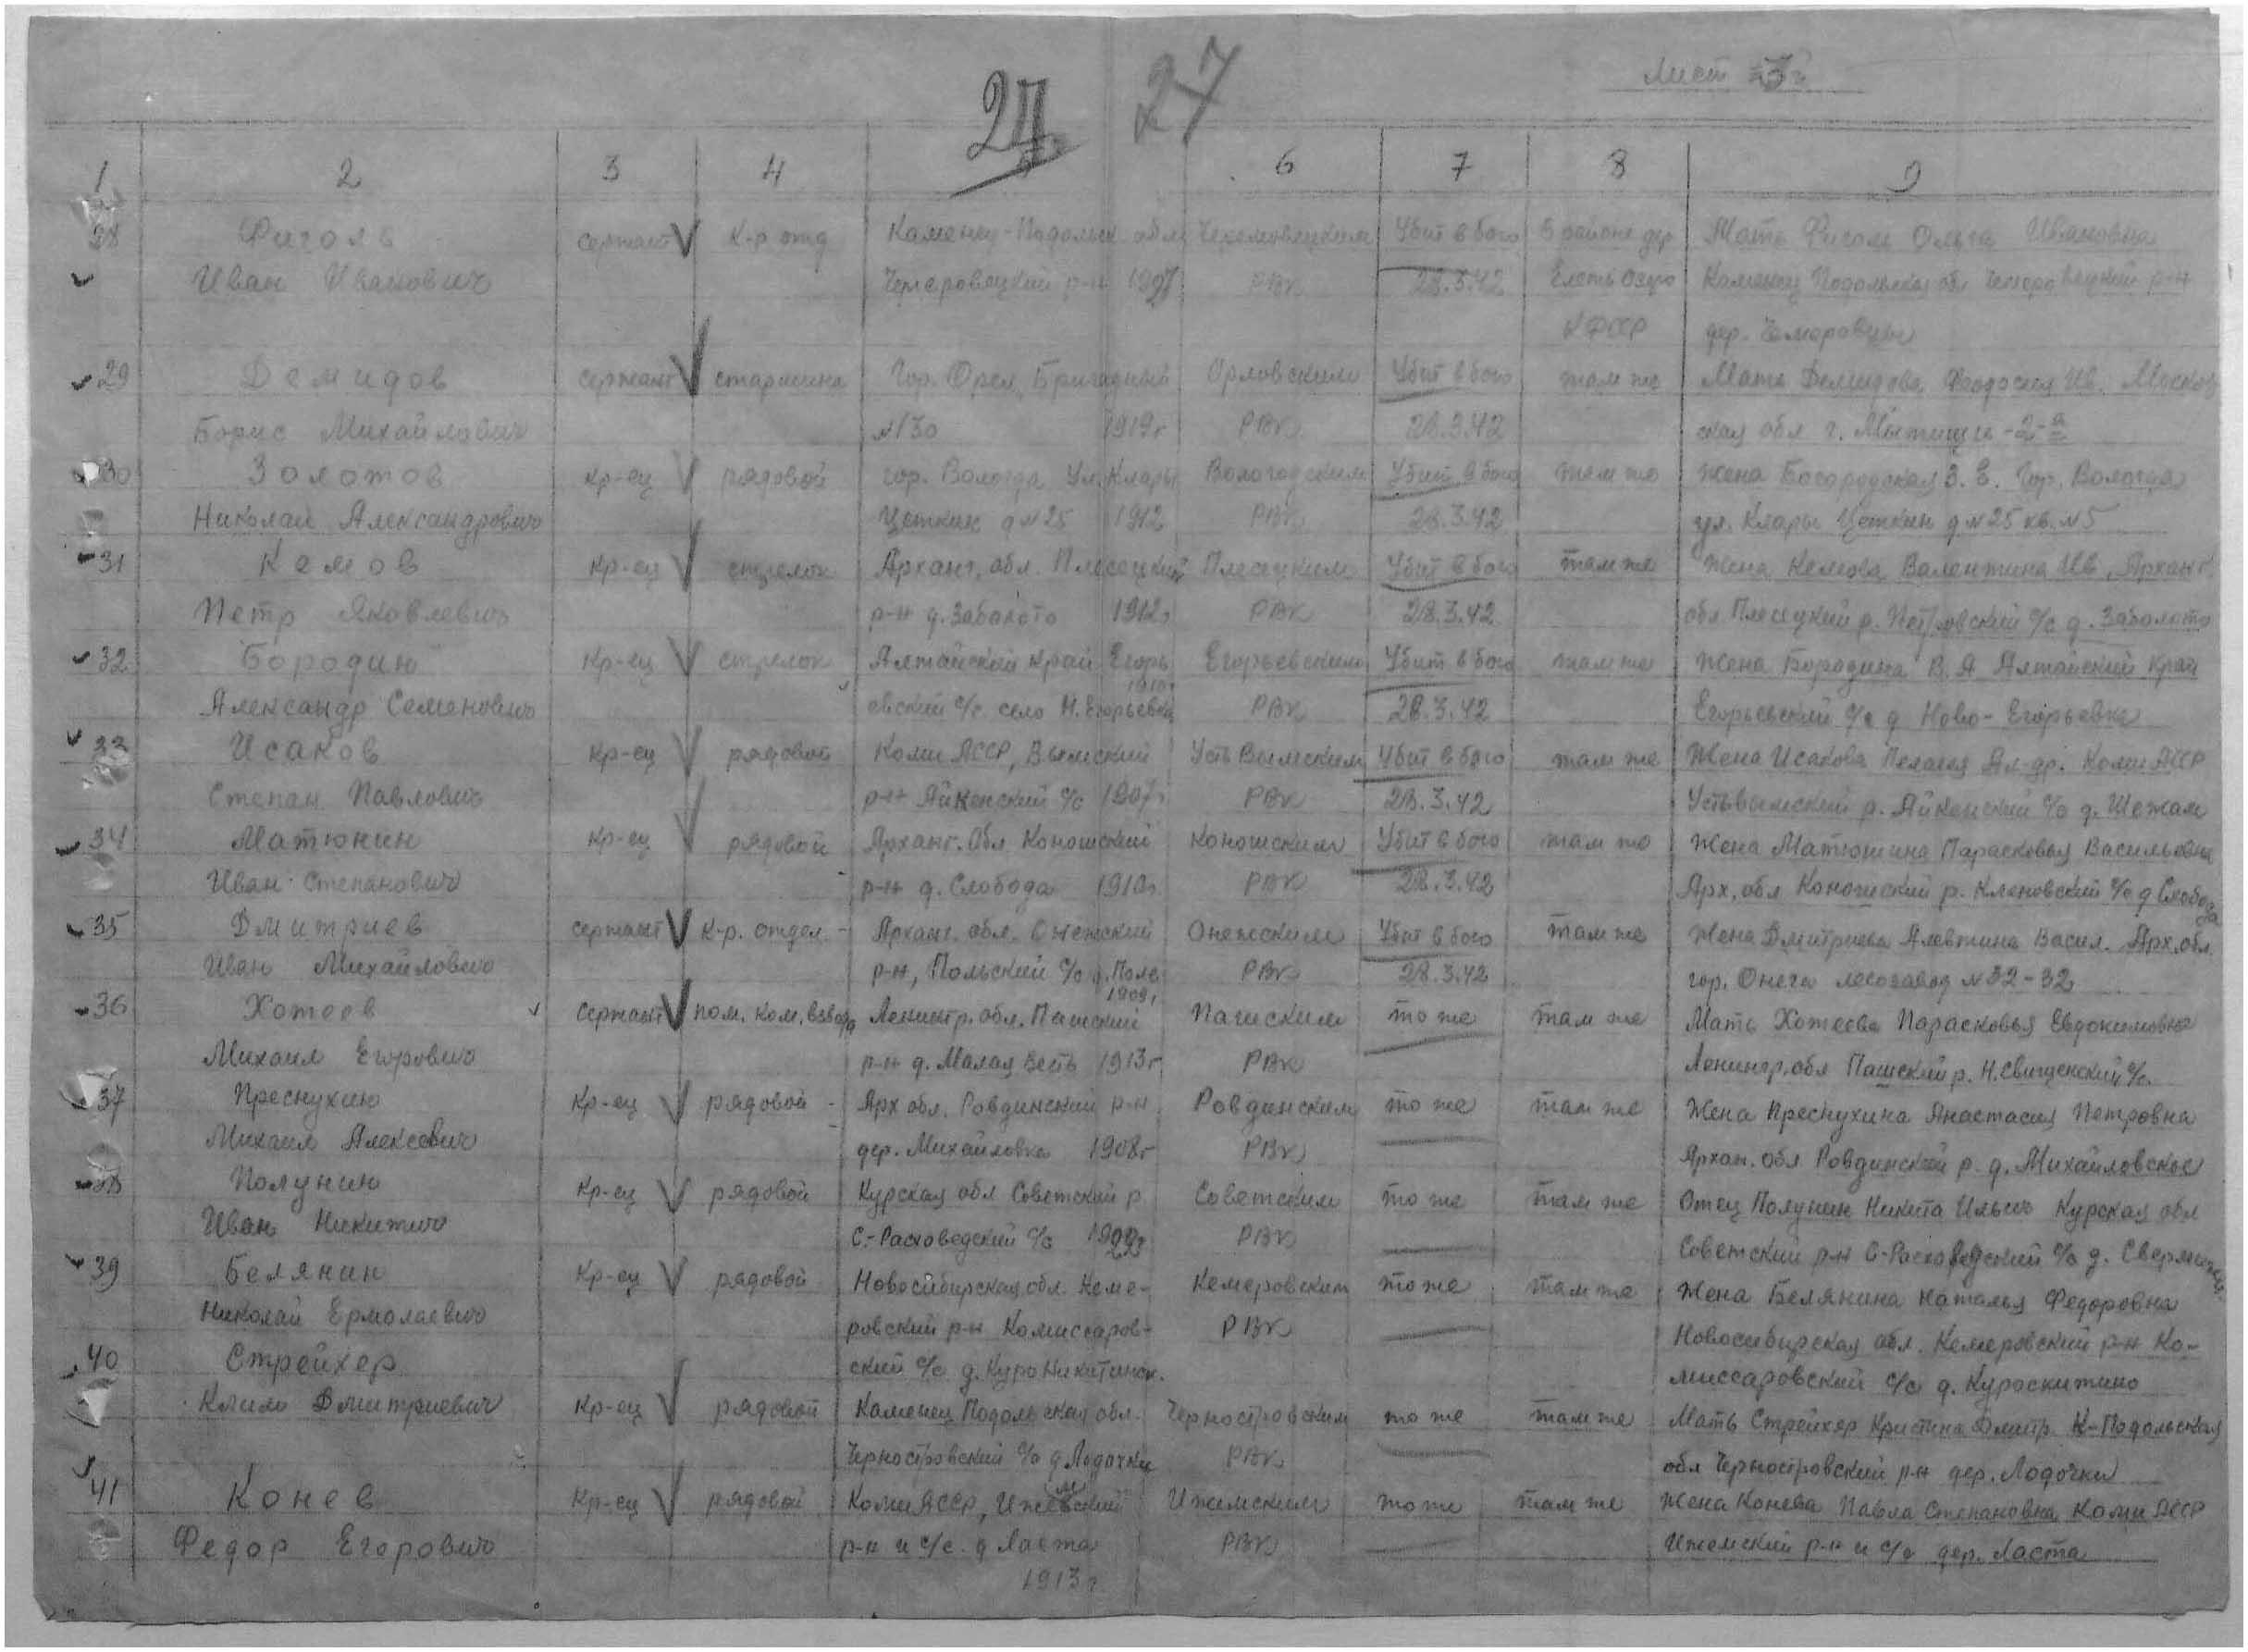 27
Лист
1 2 3 4 6 7 8 9
28 Фиголь сержант к-р отд Каменец-Подольск обл Чемеровецким Убит в бою в районе дер Мать Ольга Ивановна
Иван Иванович Чемеровецкий р-н РВК 28.3.42 Елеть Озеро Каменец Подольская обл Чемеровецкий р-н
КФССР дер. Чемеровцы
29 Демидов сержант старшина Гор. Орел, Бригадный Орловским Убит в бою там же Мать Демидова Феодосия Ив. Москов
Борис Михайлович N130 1919г РВК 28.3.42 ская обл г. Мытищи -2-я
30 Золотов кр-ец рядовой гор. Вологда Ул. Клары Вологодским Убит в бою там же жена Богородская З. Е. Гор. Вологда
Николай Александрович Цеткин д N25 1912 РВК 28.3.42 ул. Клары Цеткин д N25 кв. N5
31 Кемов кр-ец стрелок Арханг. обл. Плесецкий Плесецким Убит в бою там же Жена Кемова Валентина Ив. Арханг.
Петр Яковлевич р-н д. Заболото 1912г РВК 28.3.42 обл Плесецкий р. с/с д. Заболото
32 Бородин кр-ец стрелок Алтайский край Егорь Егорьевским Убит в бою там же Жена Бородина В. А Алтайский край
Александр Семенович евский с/с. село Н. Егорьевка 1910г РВК 28.3.42 Егорьевский с/с д Ново-Егорьевка
33 Исаков кр-ец рядовой Коми АССР, Вымский Усть Вымским Убит в бою там же Жена Исакова Пелагея Ал-др. Коми АССР
Степан Павлович р-н Айкенский с/с 1907г РВК 28.3.42 Устьвымский р. Айкенский с/с д. Шежам
34 Матюнин кр-ец рядовой Арханг. Обл Коношский Коношским Убит в бою там же Жена Матюнина Парасковья Васильевна
Иван Степанович р-н д. Слобода 1910г. РВК 28.3.42 Арх. обл Коношский р. Кленовский с/с д Слобода
35 Дмитриев сержант к-р. отдел. Арханг. обл. Онежский Онежским Убит в бою там же Жена Дмитриева Алевтина Васил. Арх. обл.
Иван Михайлович р-н, Польский с/с д. Поле 1909г РВК 28.3.42 гор. Онега лесозавод N32-32
36 Хотеев сержант пом. ком. взвода Ленингр. обл. Пашский Пашским то же там же Мать Хотеева Парасковья Евдокимовна
Михаил Егорович р-н д. Малая Весть 1913г РВК Ленингр. обл Пашский р. Н. Свищенский с/с.
37 Преснухин кр-ец рядовой Арх обл. Ровдинский р-н Ровдинским то же там же Жена Преснухина Анастасия Петровна
Михаил Алексеевич дер. Михайловка 1908г РВК Архан. обл Ровдинский р. д. Михайловское
38 Полунин кр-ец рядовой Курская обл Советский р. Советским то же там же Отец Полунин Никита Ильич Курская обл
Иван Никитич С.-Расховедский с/с РВК Советский р-н С-Расховедский с/с д.
39 Белянин кр-ец рядовой Новосибирская обл. Кеме- Кемеровским то же там же Жена Белянина Наталья Федоровна
Николай Ермолаевич ровский р-н Комиссаров- РВК Новосибирская обл. Кемеровский р-н Ко-
40 Стрейхер ский с/с д. миссаровский с/с д. Кураскитино
Клим Дмитриевич кр-ец рядовой Каменец Подольская обл. Черностровским то же там же Мать Стрейхер Кристина Дмитр. К-Подольская
Черностровский с/с д Лодочки РВК обл Черностровский р-н дер. Лодочки
41 Конев кр-ец рядовой Коми АССР, Ижемский Ижемским то же там же Жена Конева Павла Степановна Коми АССР
Федор Егорович р-н и с/с. д Ласта РВК Ижемский р-н и с/с дер. Ласта
1913г